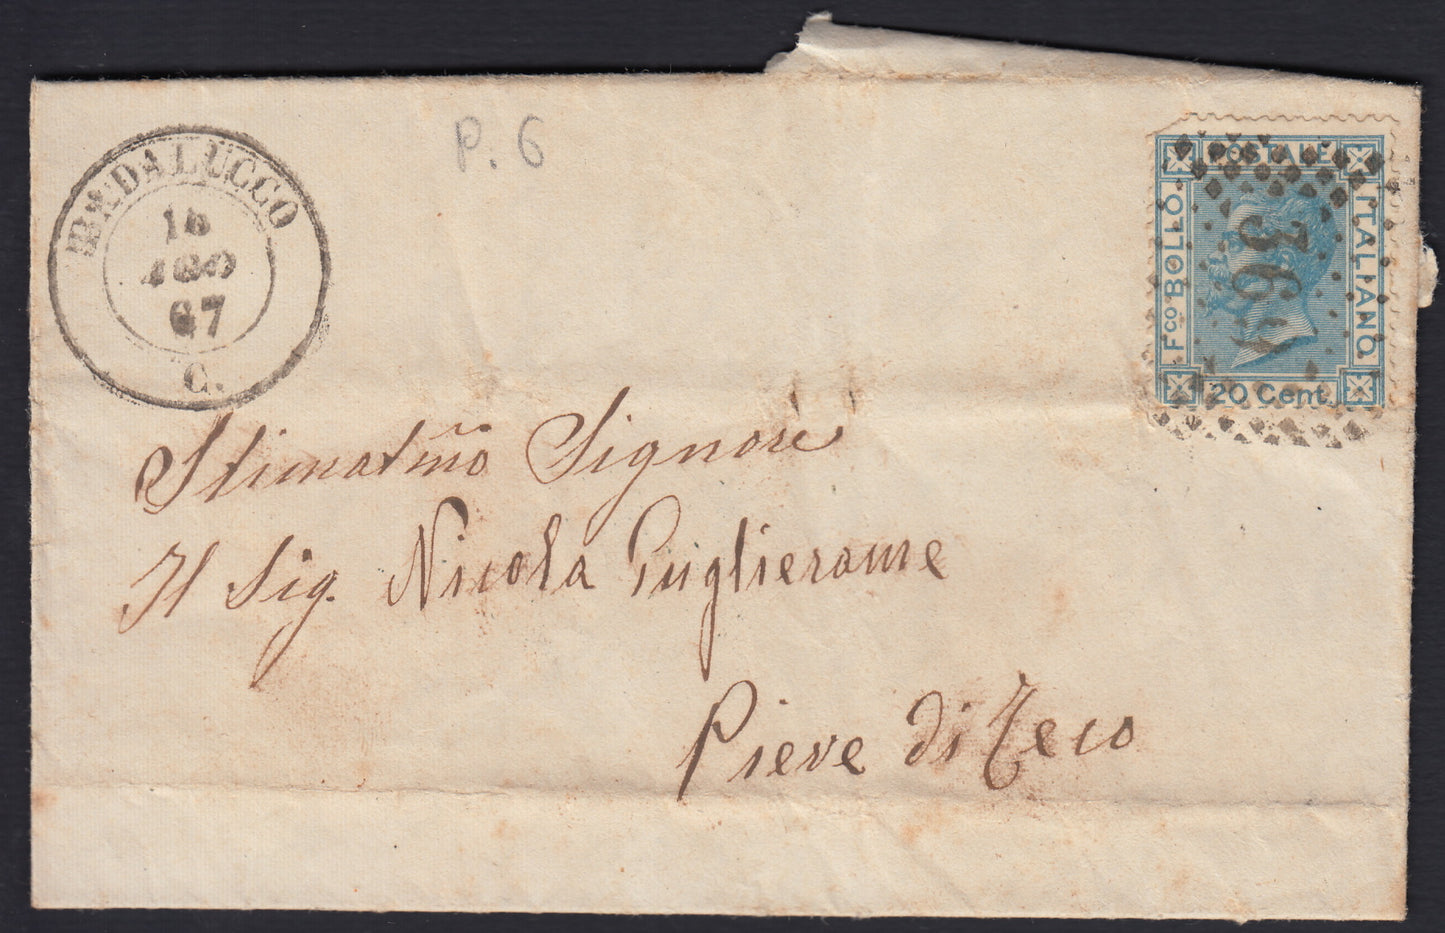 P. 6
BADALUCCO
16
AGO
67
C.
POSTALE
Fco BOLLO
ITALIANO
20 Cent.
Stimatmo Signore
Il Sig. Nicola Puglierame
Pieve di Teco